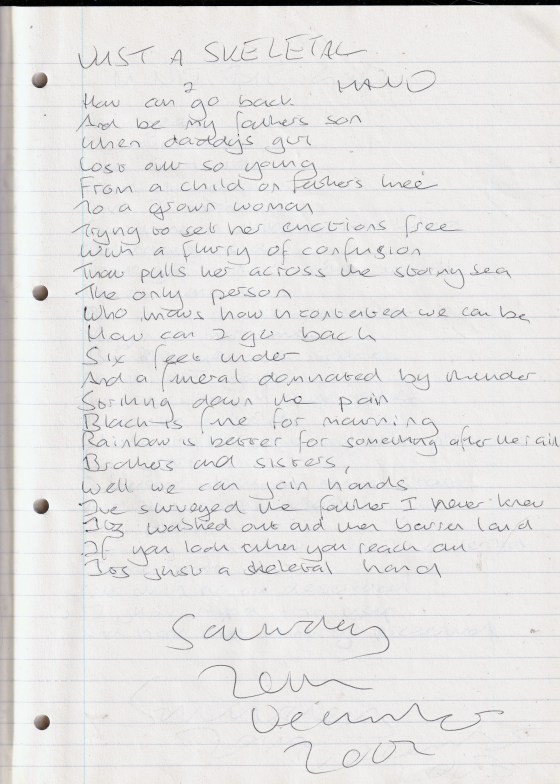 JUST A SKELETAL
HAND
How can I go back
And be my fathers son
When daddy's girl
Lost out so young
From a child on father's knee
To a grown woman
Trying to set her emotions free
With a flurry of confusion
That pulls her across the stormy sea
The only person
Who knows how contented we can be
How can I go back
Six feet under
And a funeral dominated by thunder
Striking down the pain
Black is fine for mourning
Rainbow is better for something after the rain
Brothers and sisters,
Well we can join hands
I've surveyed the father I never knew
Its washed out and then barren land
If you look when you reach out
Its just a skeletal hand
Saturday
December
2002